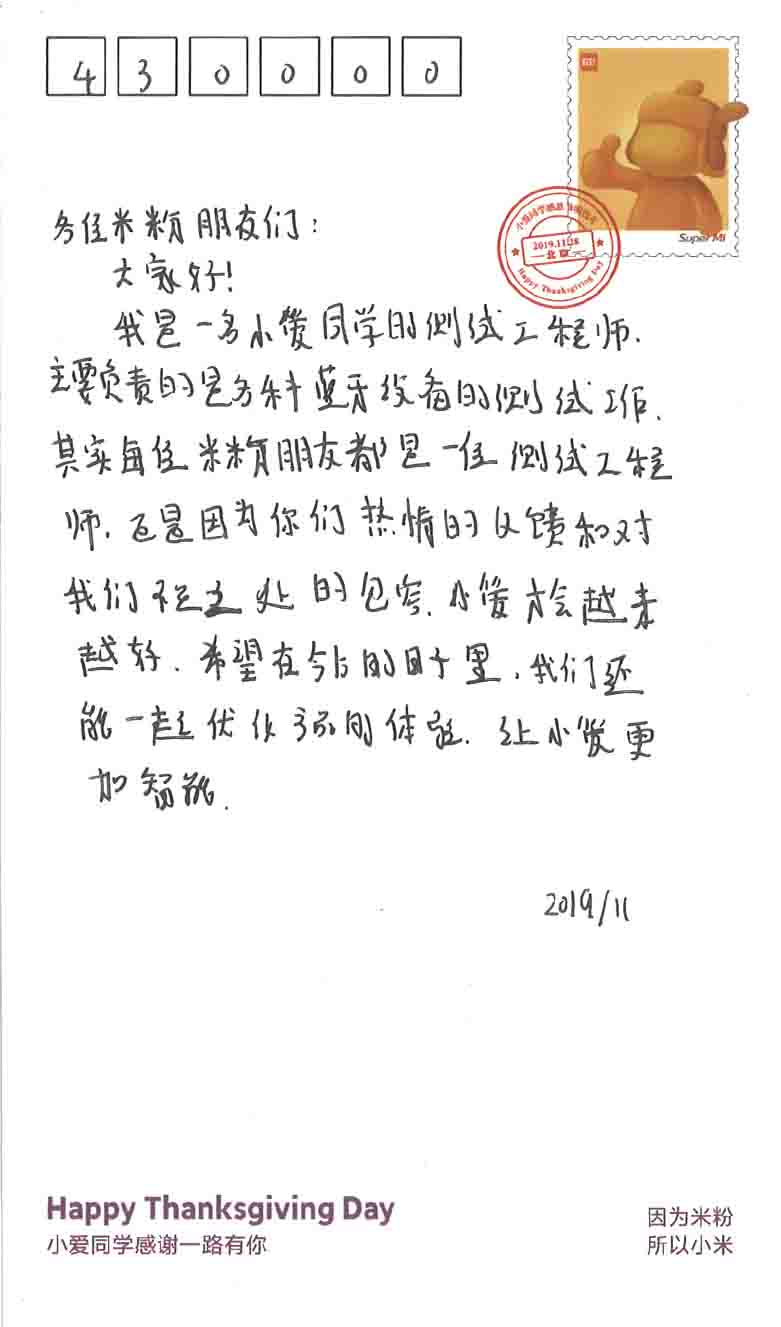 430000
Super Mi
小爱同学感恩
2019.11.28
北京
Happy Thanksgiving Day
各位米粉朋友们：
大家好！
我是一名小爱同学的测试工程师.
主要负责的是各种蓝牙设备的测试工作.
其实每位米粉朋友都是一位测试工程
师.正是因为你们热情的反馈和对
我们不足之处的包容.小爱才会越来
越好.希望在今后的日子里.我们还
能一起优化产品的体验.让小爱更
加智能.
2019/11
Happy Thanksgiving Day
小爱同学感谢一路有你
因为米粉
所以小米